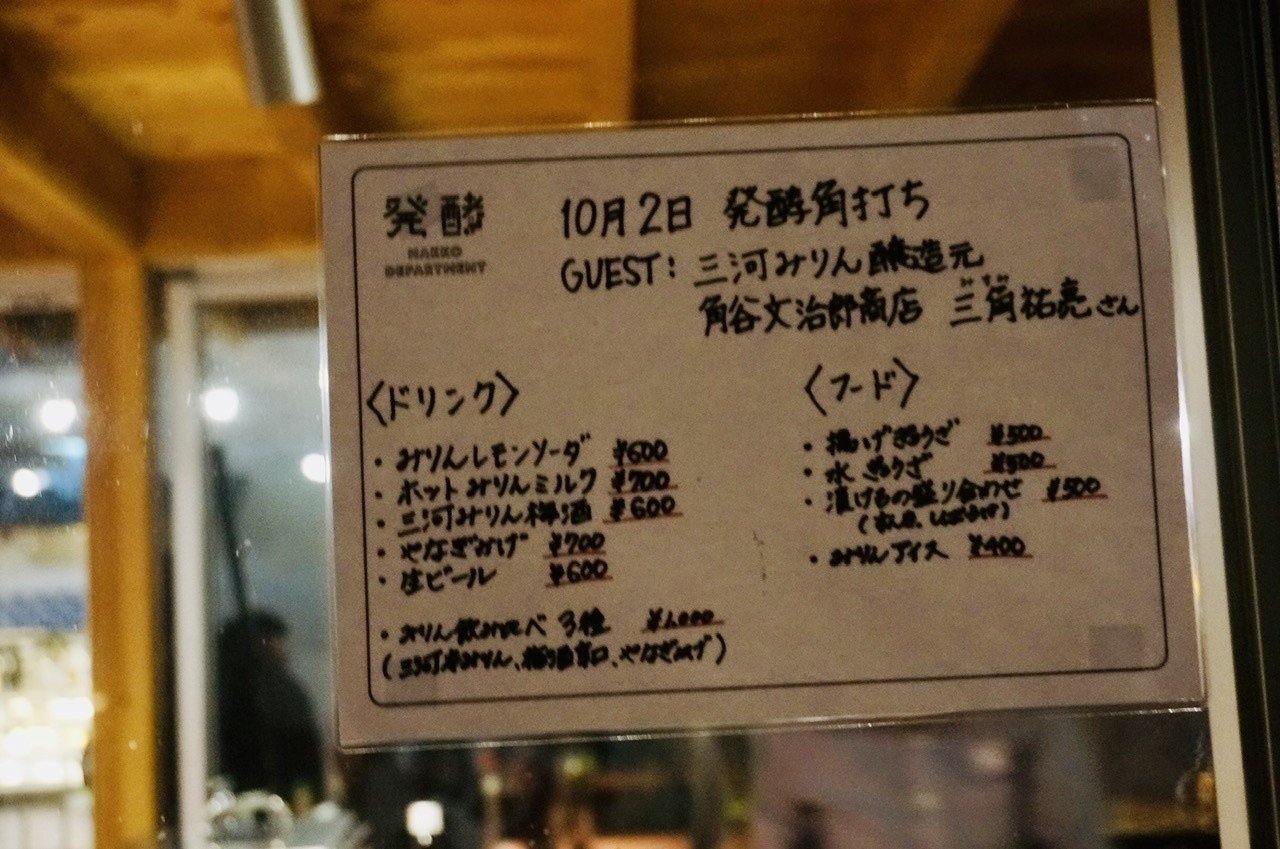 発酵
HAKKO
DEPARTMENT
10月2日 発酵角打ち
GUEST: 三河みりん醸造元
角谷文治郎商店 三角祐亮さん
みすみ
〈ドリンク〉
・みりんレモンソーダ ¥600
・ホットみりんミルク ¥700
・三河みりん梅酒 ¥600
・やなぎかげ ¥700
・生ビール ¥600
・みりん飲み比べ 3種 ¥1,000
(三河本みりん、梅酒辛口、やなぎかげ)
〈フード〉
・揚げぎょうざ ¥500
・水ぎょうざ ¥500
・漬けもの盛り合わせ ¥500
・みりんアイス ¥400